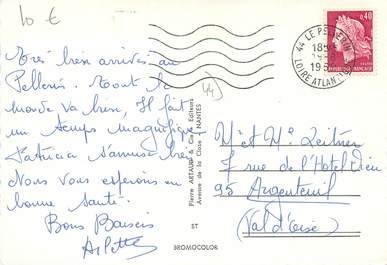 10 €
Très bien arrivés au
Pellerin. Tout le
monde va bien, Il fait
un temps magnifique
Patricia s'amuse bien
Nous vous espérons en
bonne santé.
Bons Baisers
Arlette
44 LE PELLERIN
18H
LOIRE ATLANT
0,40
Pierre ARTAUD & Cie, Editeurs
Avenue de la Close - NANTES
ST
BROMOCOLOR
Mr et Me Leitner
7 rue de l'Hotel Dieu
95 Argenteuil
(Val d'oise)